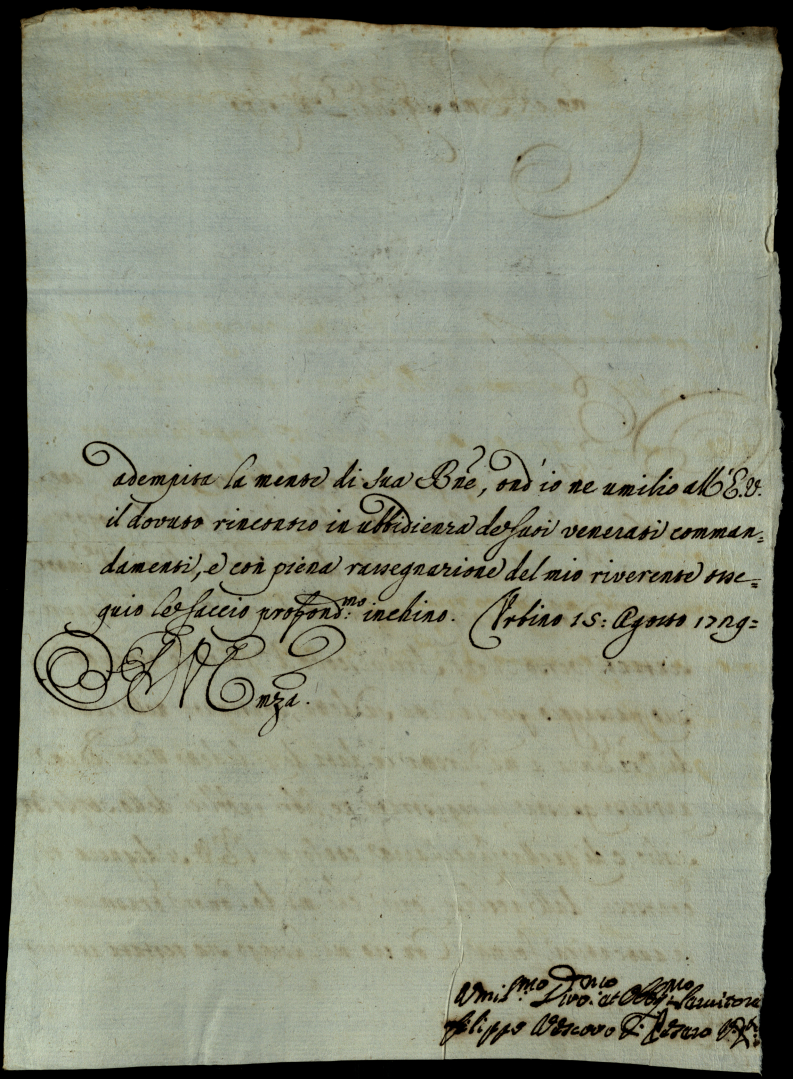 adempita la mente di Sua Bne, ond'io ne umilio all'E.V.
il dovuto rincontro in ubbidienza de suoi venerati comman=
damenti, e con piena rassegnazione del mio riverente osse=
quio le faccio profond.mo inchino. Urbino 15: Agosto 1729=
Di V. Em̃nza.
Umil.mo Divo.mo et Obbg.mo Servitore
Filippo Vescovo di Pesaro